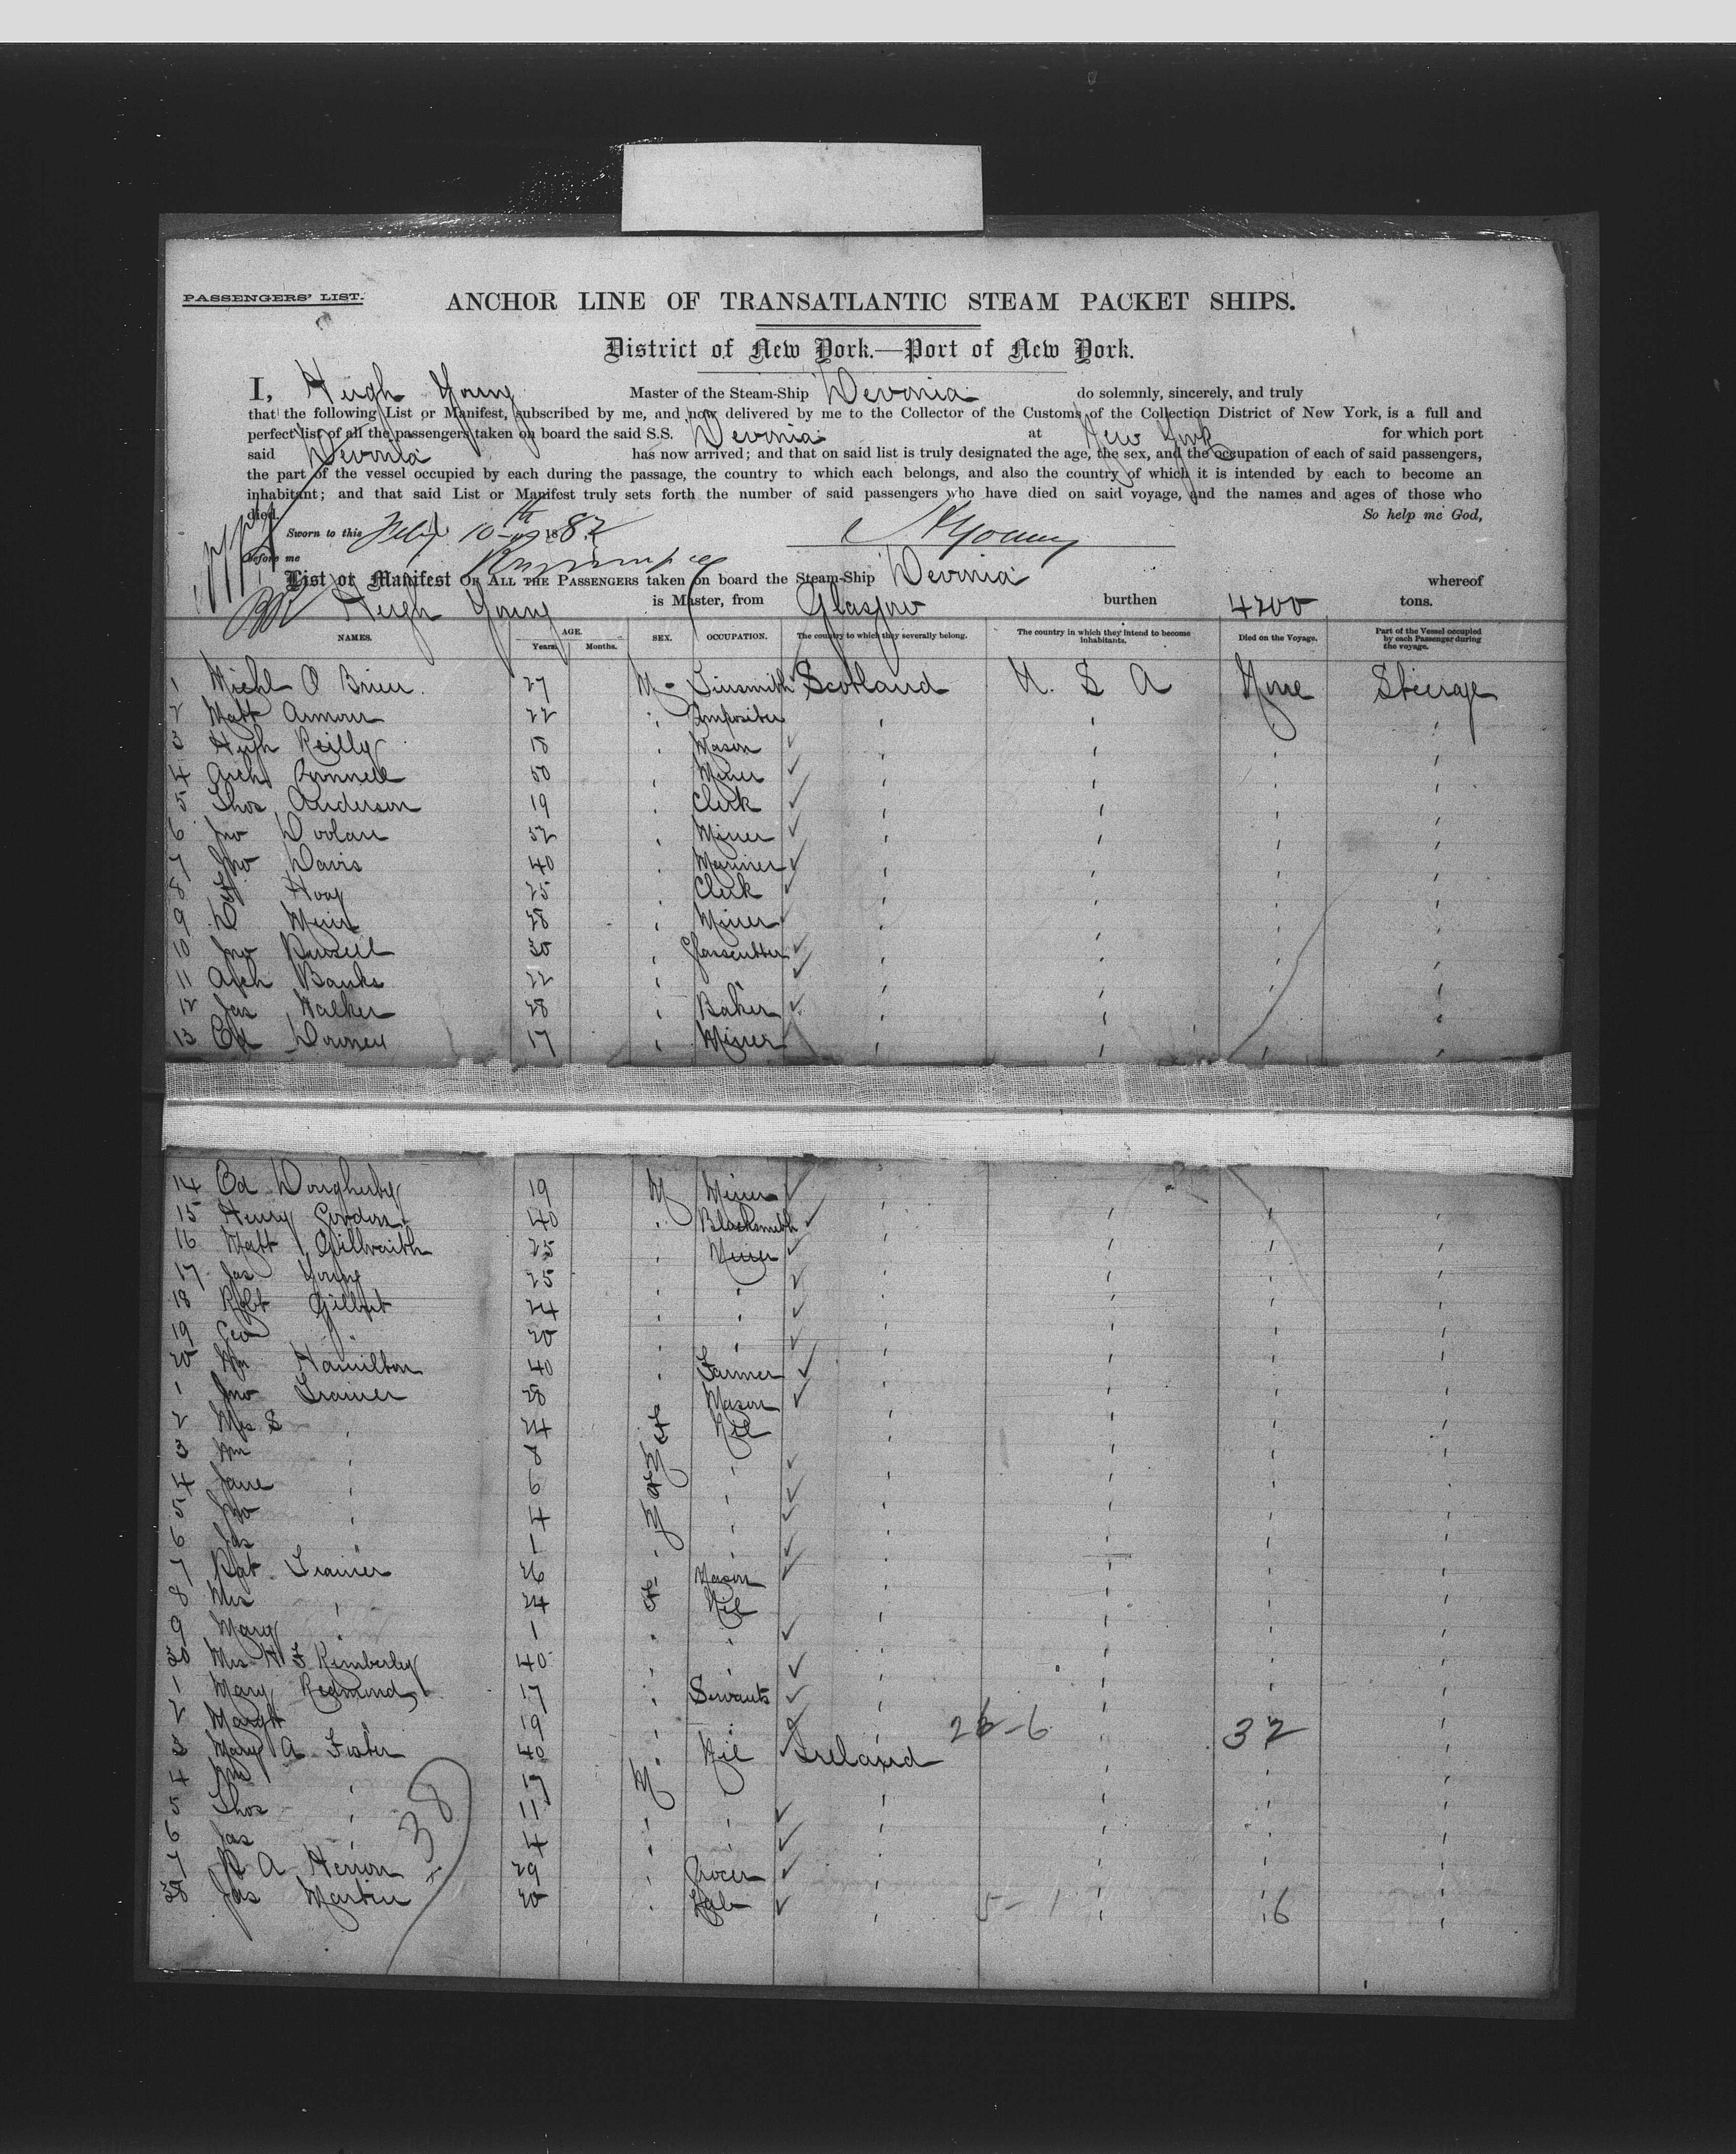 PASSENGERS' LIST.
ANCHOR LINE OF TRANSATLANTIC STEAM PACKET SHIPS.
District of New York.—Port of New York.
I, Hugh Young Master of the Steam-Ship Devonia do solemnly, sincerely, and truly
that the following List or Manifest, subscribed by me, and now delivered by me to the Collector of the Customs of the Collection District of New York, is a full and
perfect list of all the passengers taken on board the said S.S. Devonia at New York for which port
said Devonia has now arrived; and that on said list is truly designated the age, the sex, and the occupation of each of said passengers,
the part of the vessel occupied by each during the passage, the country to which each belongs, and also the country of which it is intended by each to become an
inhabitant; and that said List or Manifest truly sets forth the number of said passengers who have died on said voyage, and the names and ages of those who
died. So help me God,
Sworn to this Feby 10th 1882 HYoung
Before me
List or Manifest OF ALL THE PASSENGERS taken on board the Steam-Ship Devonia whereof
Hugh Young is Master, from Glasgow burthen 4200 tons.
NAMES. AGE. Years. Months. SEX. OCCUPATION. The country to which they severally belong. The country in which they intend to become inhabitants. Died on the Voyage. Part of the Vessel occupied by each Passenger during the voyage.
1 Michl O Brien 27 M Tinsmith Scotland U. S A None Steerage
2 Matt Armour 22 " Compositer " " " "
3 Hugh Reilly 18 " Mason " " " "
4 Arch Connell 50 " Miner " " " "
5 Thos Anderson 19 " Clerk " " " "
6 Jno Doolan 52 " Miner " " " "
7 Jno Davis 40 " Mariner " " " "
8 Hoey 25 " Clerk " " " "
9 D Muir 28 " Miner " " " "
10 Jno Russell 30 " Glasscutter " " " "
11 Arch Banks 22 " " " " " "
12 Jas Walker 28 " Baker " " " "
13 Ed Downey 17 " Miner " " " "
14 Ed Dougherty 19 M Miner " " " "
15 Henry Geddes 40 " Blacksmith " " " "
16 Matt Gillraith 25 " Miner " " " "
17 Jas Young 25 " " " " " "
18 Robt Gilbert 24 " " " " " "
19 Geo " 20 " " " " " "
20 Wm Hamilton 40 " Farmer " " " "
1 Jno Trainer 28 " Mason " " " "
2 Mrs S " 24 F Nil " " " "
3 Wm " 8 M " " " " "
4 Jane " 6 F " " " " "
5 Jno " 4 M " " " " "
6 Jas " 1 " " " " " "
7 Pat Trainer 26 " Mason " " " "
8 Mrs " 24 F Nil " " " "
9 Mary " 1 " " " " " "
30 Mrs H F Kimberley 40 " " " " " "
1 Mary Redmond 17 " Servants " " " "
2 Margt 19 " " 26-6 " 32 "
3 Mary A Foster 40 " Nil Ireland " " "
4 Wm 17 M " " " " "
5 Thos " 11 " " " " " "
6 Jas " 4 " " " " " "
7 R A Herron 29 " Grocer " " " "
38 Jas Martin 20 " Lab " 5-1 " 6 "
38